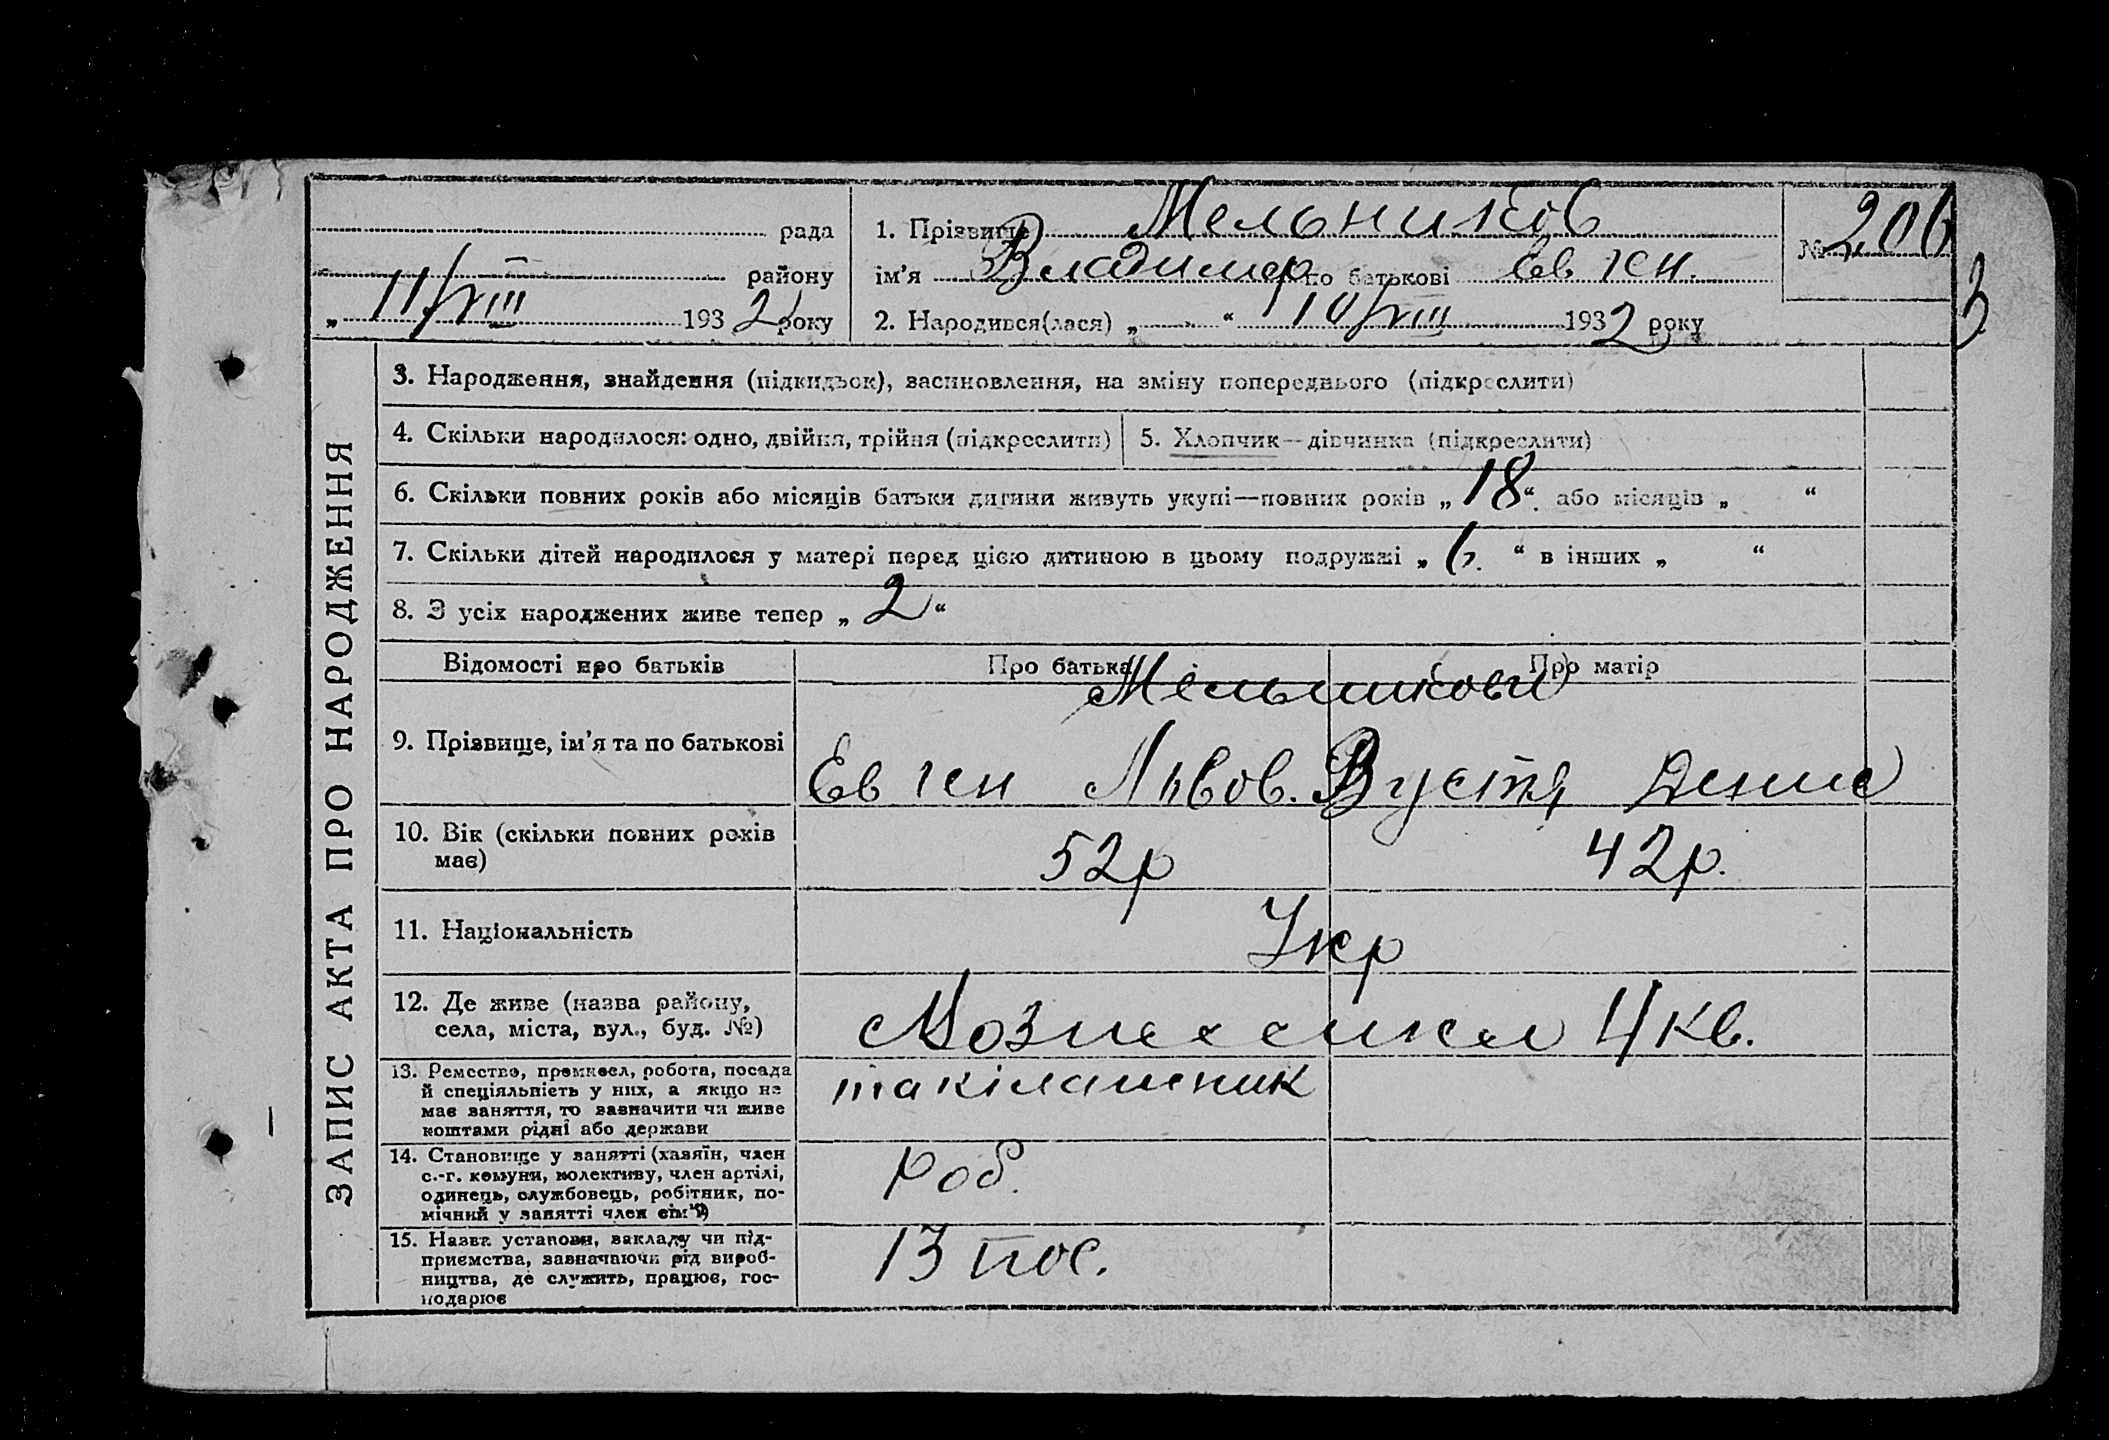 рада
району
„ 11/VIII 1932 року
1. Прізвище Мельников
ім’я Владимер по батькові Євген.
2. Народився(лася) „ “ 10/VIII 1932 року
№ 206
ЗАПИС АКТА ПРО НАРОДЖЕННЯ
3. Народження, знайдення (підкидьок), засиновлення, на зміну попереднього (підкреслити)
4. Скільки народилося: одно, двійня, трійня (підкреслити)
5. Хлопчик—дівчинка (підкреслити)
6. Скільки повних років або місяців батьки дитини живуть укупі—повних років „ 18 “ або місяців „ “
7. Скільки дітей народилося у матері перед цією дитиною в цьому подружжі „ “ в інших „ “
8. З усіх народжених живе тепер „ 2 “
Відомості про батьків
Про батька
Про матір
9. Прізвище, ім’я та по батькові
Мельникови
Євген Львов.
Денис
10. Вік (скільки повних років
має)
52р
42р.
11. Національність
Укр
12. Де живе (назва району,
села, міста, вул., буд. №)
4 кв.
13. Ремество, промисел, робота, посада
й спеціяльність у них, а якщо не
має заняття, то зазначити чи живе
коштами рідні або держави
14. Становище у занятті (хазяїн, член
с.-г. комуни, колективу, член артілі,
одинець, службовець, робітник, по-
мічний у занятті член сім’ї)
Роб.
15. Назва установи, закладу чи під-
приємства, зазначаючи рід вироб-
ництва, де служить, працює, гос-
подарює
13 пос.